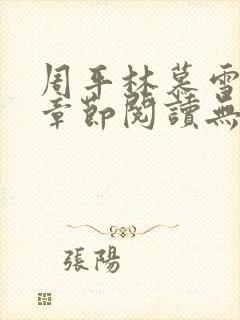 周平林慕雪
章節閱讀無
張陽